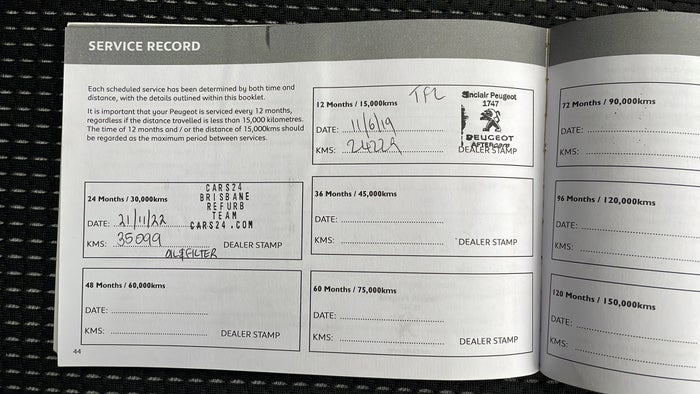 SERVICE RECORD
Each scheduled service has been determined by both time and
distance, with the details outlined within this booklet.
It is important that your Peugeot is serviced every 12 months,
regardless if the distance travelled is less than 15,000 kilometres.
The time of 12 months and / or the distance of 15,000kms should
be regarded as the maximum period between services.
12 Months / 15,000kms
TFL
DATE: 11/6/19
KMS: 24229
Sinclair Peugeot
1747
PEUGEOT
AFTERCARE
DEALER STAMP
24 Months / 30,000kms
DATE: 21/11/22
KMS: 35099
CARS24
BRISBANE
REFURB
TEAM
CARS24.COM
DEALER STAMP
OIL&FILTER
36 Months / 45,000kms
DATE:
KMS:
DEALER STAMP
48 Months / 60,000kms
DATE:
KMS:
DEALER STAMP
60 Months / 75,000kms
DATE:
KMS:
DEALER STAMP
44
72 Months / 90,000kms
DATE:
KMS:
96 Months / 120,000kms
DATE:
KMS:
120 Months / 150,000kms
DATE:
KMS: